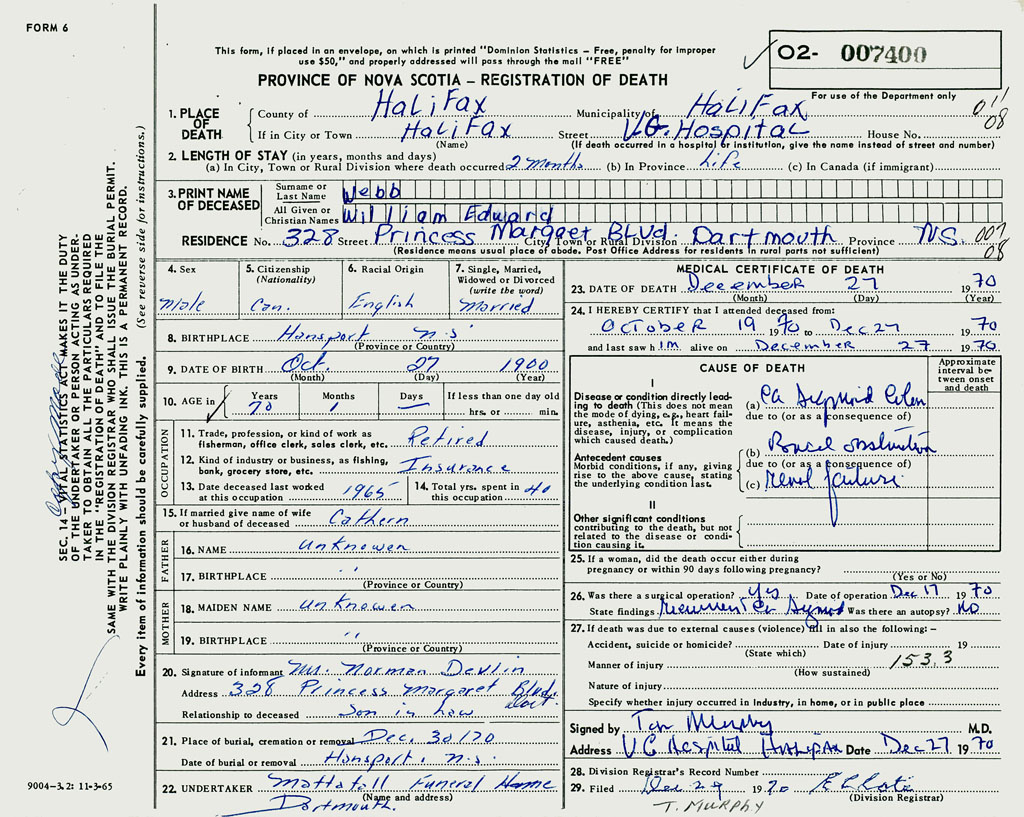 FORM 6
This form, if placed in an envelope, on which is printed "Dominion Statistics – Free, penalty for improper
use $50," and properly addressed will pass through the mail "FREE"
02- 007400
PROVINCE OF NOVA SCOTIA – REGISTRATION OF DEATH
For use of the Department only
1. PLACE OF DEATH
County of Halifax Municipality of Halifax 011
If in City or Town Halifax Street V.G. Hospital House No. 08
(Name) (If death occurred in a hospital or institution, give the name instead of street and number)
2. LENGTH OF STAY (in years, months and days)
(a) In City, Town or Rural Division where death occurred 2 months (b) In Province Life (c) In Canada (if immigrant)
3. PRINT NAME OF DECEASED
Surname or Last Name Webb
All Given or Christian Names William Edward
RESIDENCE No. 328 Street Princess Margaret Blvd. City, Town or Rural Division Dartmouth Province N.S. 007
(Residence means usual place of abode. Post Office Address for residents in rural parts not sufficient) 08
4. Sex
Male
5. Citizenship
(Nationality)
Can.
6. Racial Origin
English
7. Single, Married,
Widowed or Divorced
(write the word)
Married
8. BIRTHPLACE Hansport n.s.
(Province or Country)
9. DATE OF BIRTH Oct. 27 1900
(Month) (Day) (Year)
10. AGE in Years Months Days If less than one day old
70 1 — hrs. or min.
OCCUPATION
11. Trade, profession, or kind of work as
fisherman, office clerk, sales clerk, etc. Retired
12. Kind of industry or business, as fishing,
bank, grocery store, etc. Insurance
13. Date deceased last worked
at this occupation 1965
14. Total yrs. spent in
this occupation 40
15. If married give name of wife
or husband of deceased Cathern
FATHER
16. NAME Unknowen
17. BIRTHPLACE ''
(Province or Country)
MOTHER
18. MAIDEN NAME Unknowen
19. BIRTHPLACE ''
(Province or Country)
20. Signature of informant Mr. Norman Devlin
Address 328 Princess Margaret Blvd. Dart.
Relationship to deceased Son in Law
21. Place of burial, cremation or removal Dec. 30/70
Date of burial or removal Hansport, n.s.
22. UNDERTAKER Mattatall Funeral Home
(Name and address)
Dartmouth.
MEDICAL CERTIFICATE OF DEATH
23. DATE OF DEATH December 27 1970
(Month) (Day) (Year)
24. I HEREBY CERTIFY that I attended deceased from:
October 19 1970 to Dec 27 1970
and last saw him alive on December 27 1970
CAUSE OF DEATH
Approximate
interval be-
tween onset
and death
I
Disease or condition directly lead-
ing to death (This does not mean
the mode of dying, e.g., heart fail-
ure, asthenia, etc. It means the
disease, injury, or complication
which caused death.)
(a) Ca Sigmoid Colon
due to (or as a consequence of)
Antecedent causes
Morbid conditions, if any, giving
rise to the above cause, stating
the underlying condition last.
(b) Bowel obstruction
due to (or as a consequence of)
(c) Renal failure
II
Other significant conditions
contributing to the death, but not
related to the disease or condi-
tion causing it.
25. If a woman, did the death occur either during
pregnancy or within 90 days following pregnancy?
(Yes or No)
26. Was there a surgical operation? Yes Date of operation Dec 17 1970
State findings Was there an autopsy? No
27. If death was due to external causes (violence) fill in also the following: –
Accident, suicide or homicide? Date of injury 19
(State which) 153.3
Manner of injury
(How sustained)
Nature of injury
Specify whether injury occurred in industry, in home, or in public place
Signed by Murphy M.D.
Address V G Hospital Halifax Date Dec 27 1970
28. Division Registrar's Record Number
29. Filed Dec 29 1970
(Division Registrar)
T. MURPHY
SEC. 14 – VITAL STATISTICS ACT MAKES IT THE DUTY
OF THE UNDERTAKER OR PERSON ACTING AS UNDER-
TAKER TO OBTAIN ALL THE PARTICULARS REQUIRED
IN THE "REGISTRATION OF DEATH" AND TO FILE THE
SAME WITH THE DIVISION REGISTRAR WHO SHALL ISSUE THE BURIAL PERMIT.
WRITE PLAINLY WITH UNFADING INK. THIS IS A PERMANENT RECORD.
Every item of information should be carefully supplied. (See reverse side for instructions.)
9004–3.2: 11-3-65